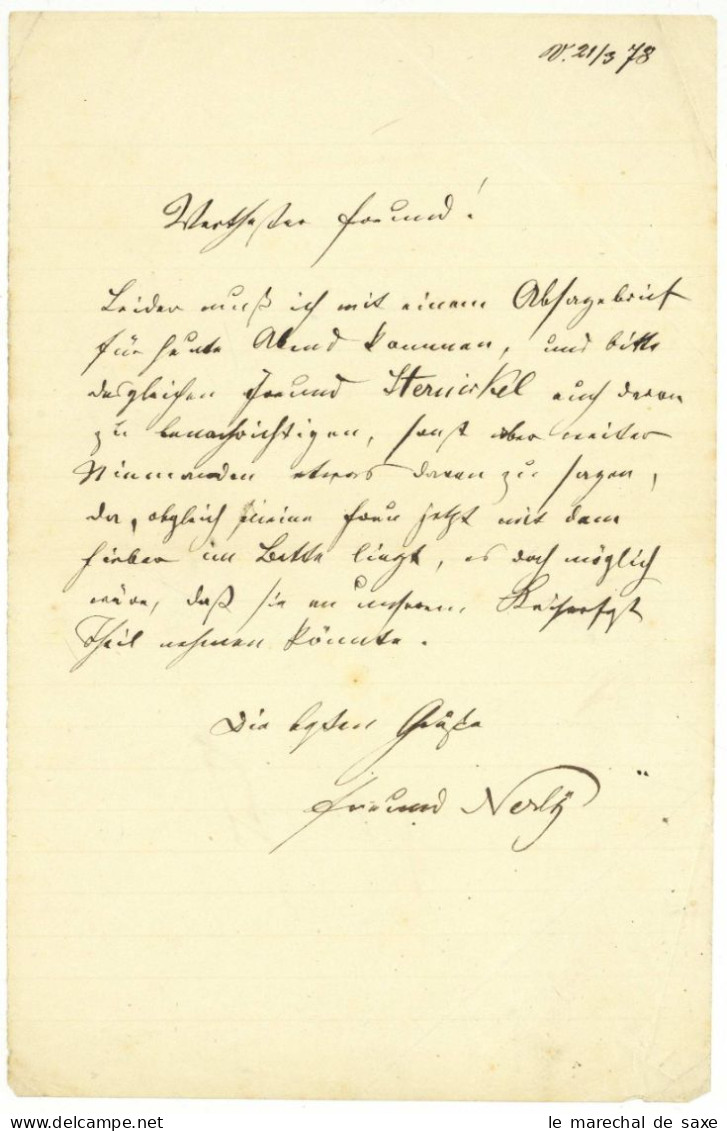 V. 21/3 78
Werthester Freund!
Leider muß ich mit einem Absagebrief
für heute Abend kommen, und bitte
desgleichen Freund Sternickel auch davon
zu benachrichtigen, sonst aber weiter
Niemanden etwas davon zu sagen,
da, obgleich meine Frau jetzt mit dem
Fieber im Bette liegt, es doch möglich
wäre, daß sie an unserem Kaiserfest
Theil nehmen könnte.
Die besten Grüße
Freund Nerly
le marechal de saxe